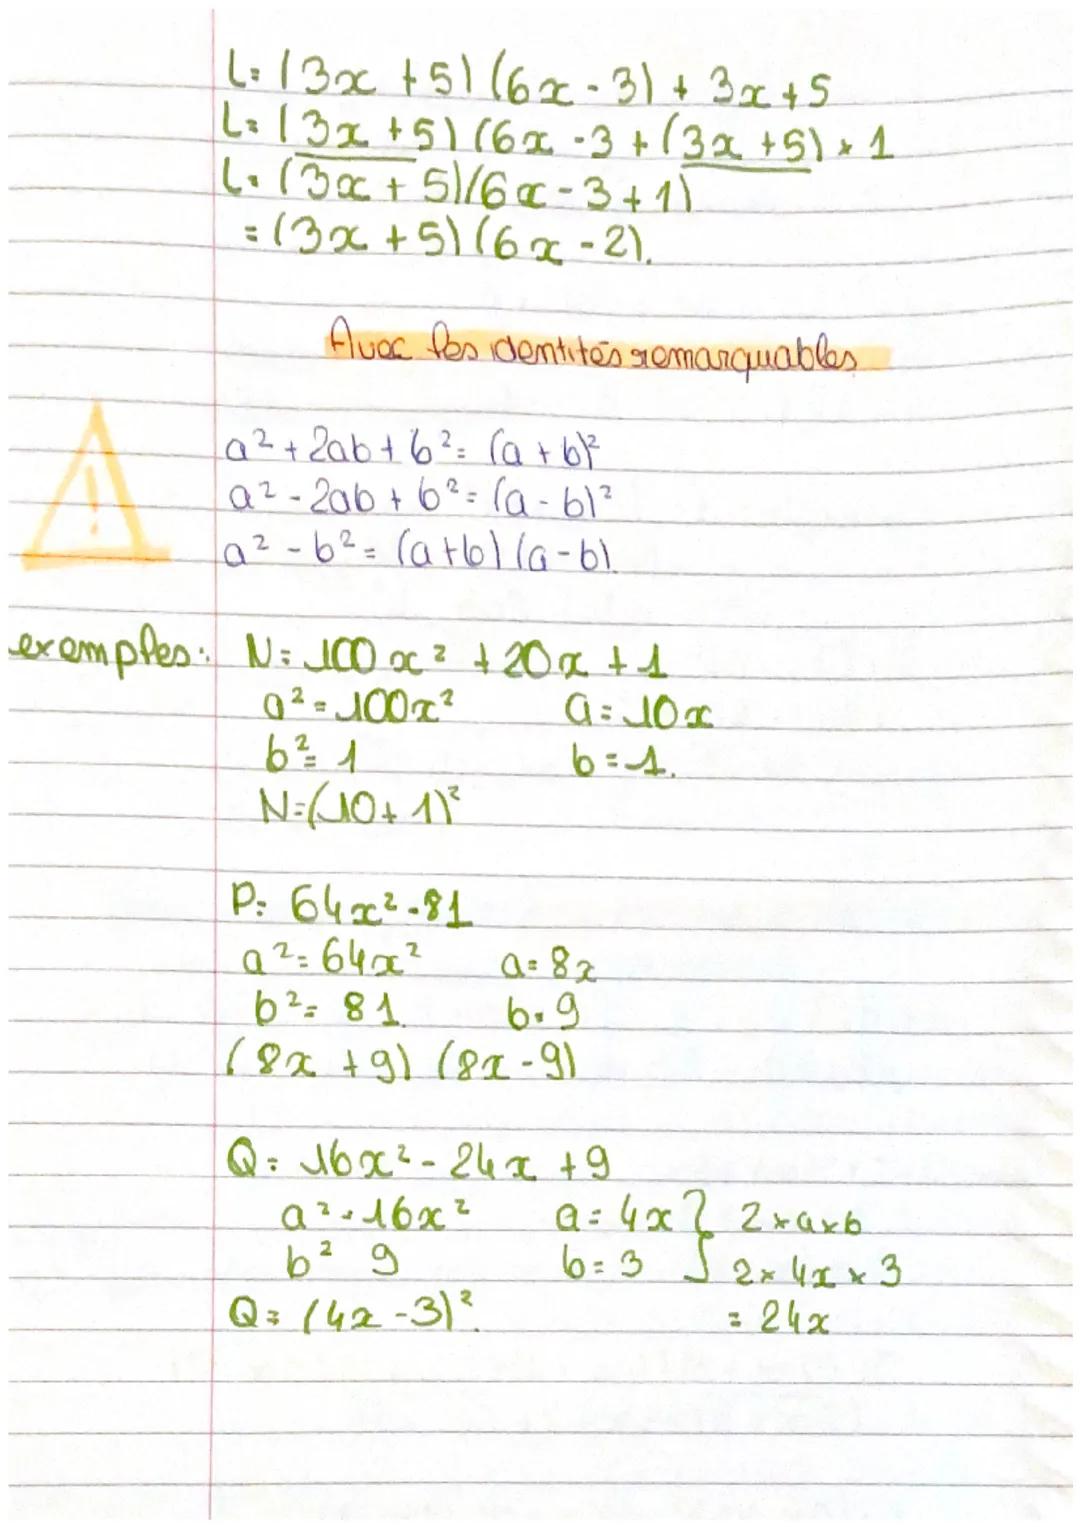 L=(3x +5) (6x-3) + 3x+5
L=(3x+5) (6x-3+(3x+5) × 1
L=(3x+5)(6x-3+1)
=(3x+5)(6x-2).
Avec les identités remarquables
a²+2ab+b²= (a+b)²
a²-2ab+b²= (a-b)²
a²-b²= (a+b) (a-b)
!
exemples: N= 100x² +20x +1
a²=100x² a=10x
b²=1 b=1.
N=(10+1)²
P= 64x²-81
a²=64x² a=8x
b²=81. b=9
(8x+9) (8x-9)
Q= 16x²-24x+9
a²=16x² a=4x } 2×a×b
b² 9 b=3 2×4x×3
Q= (4x-3)². = 24x